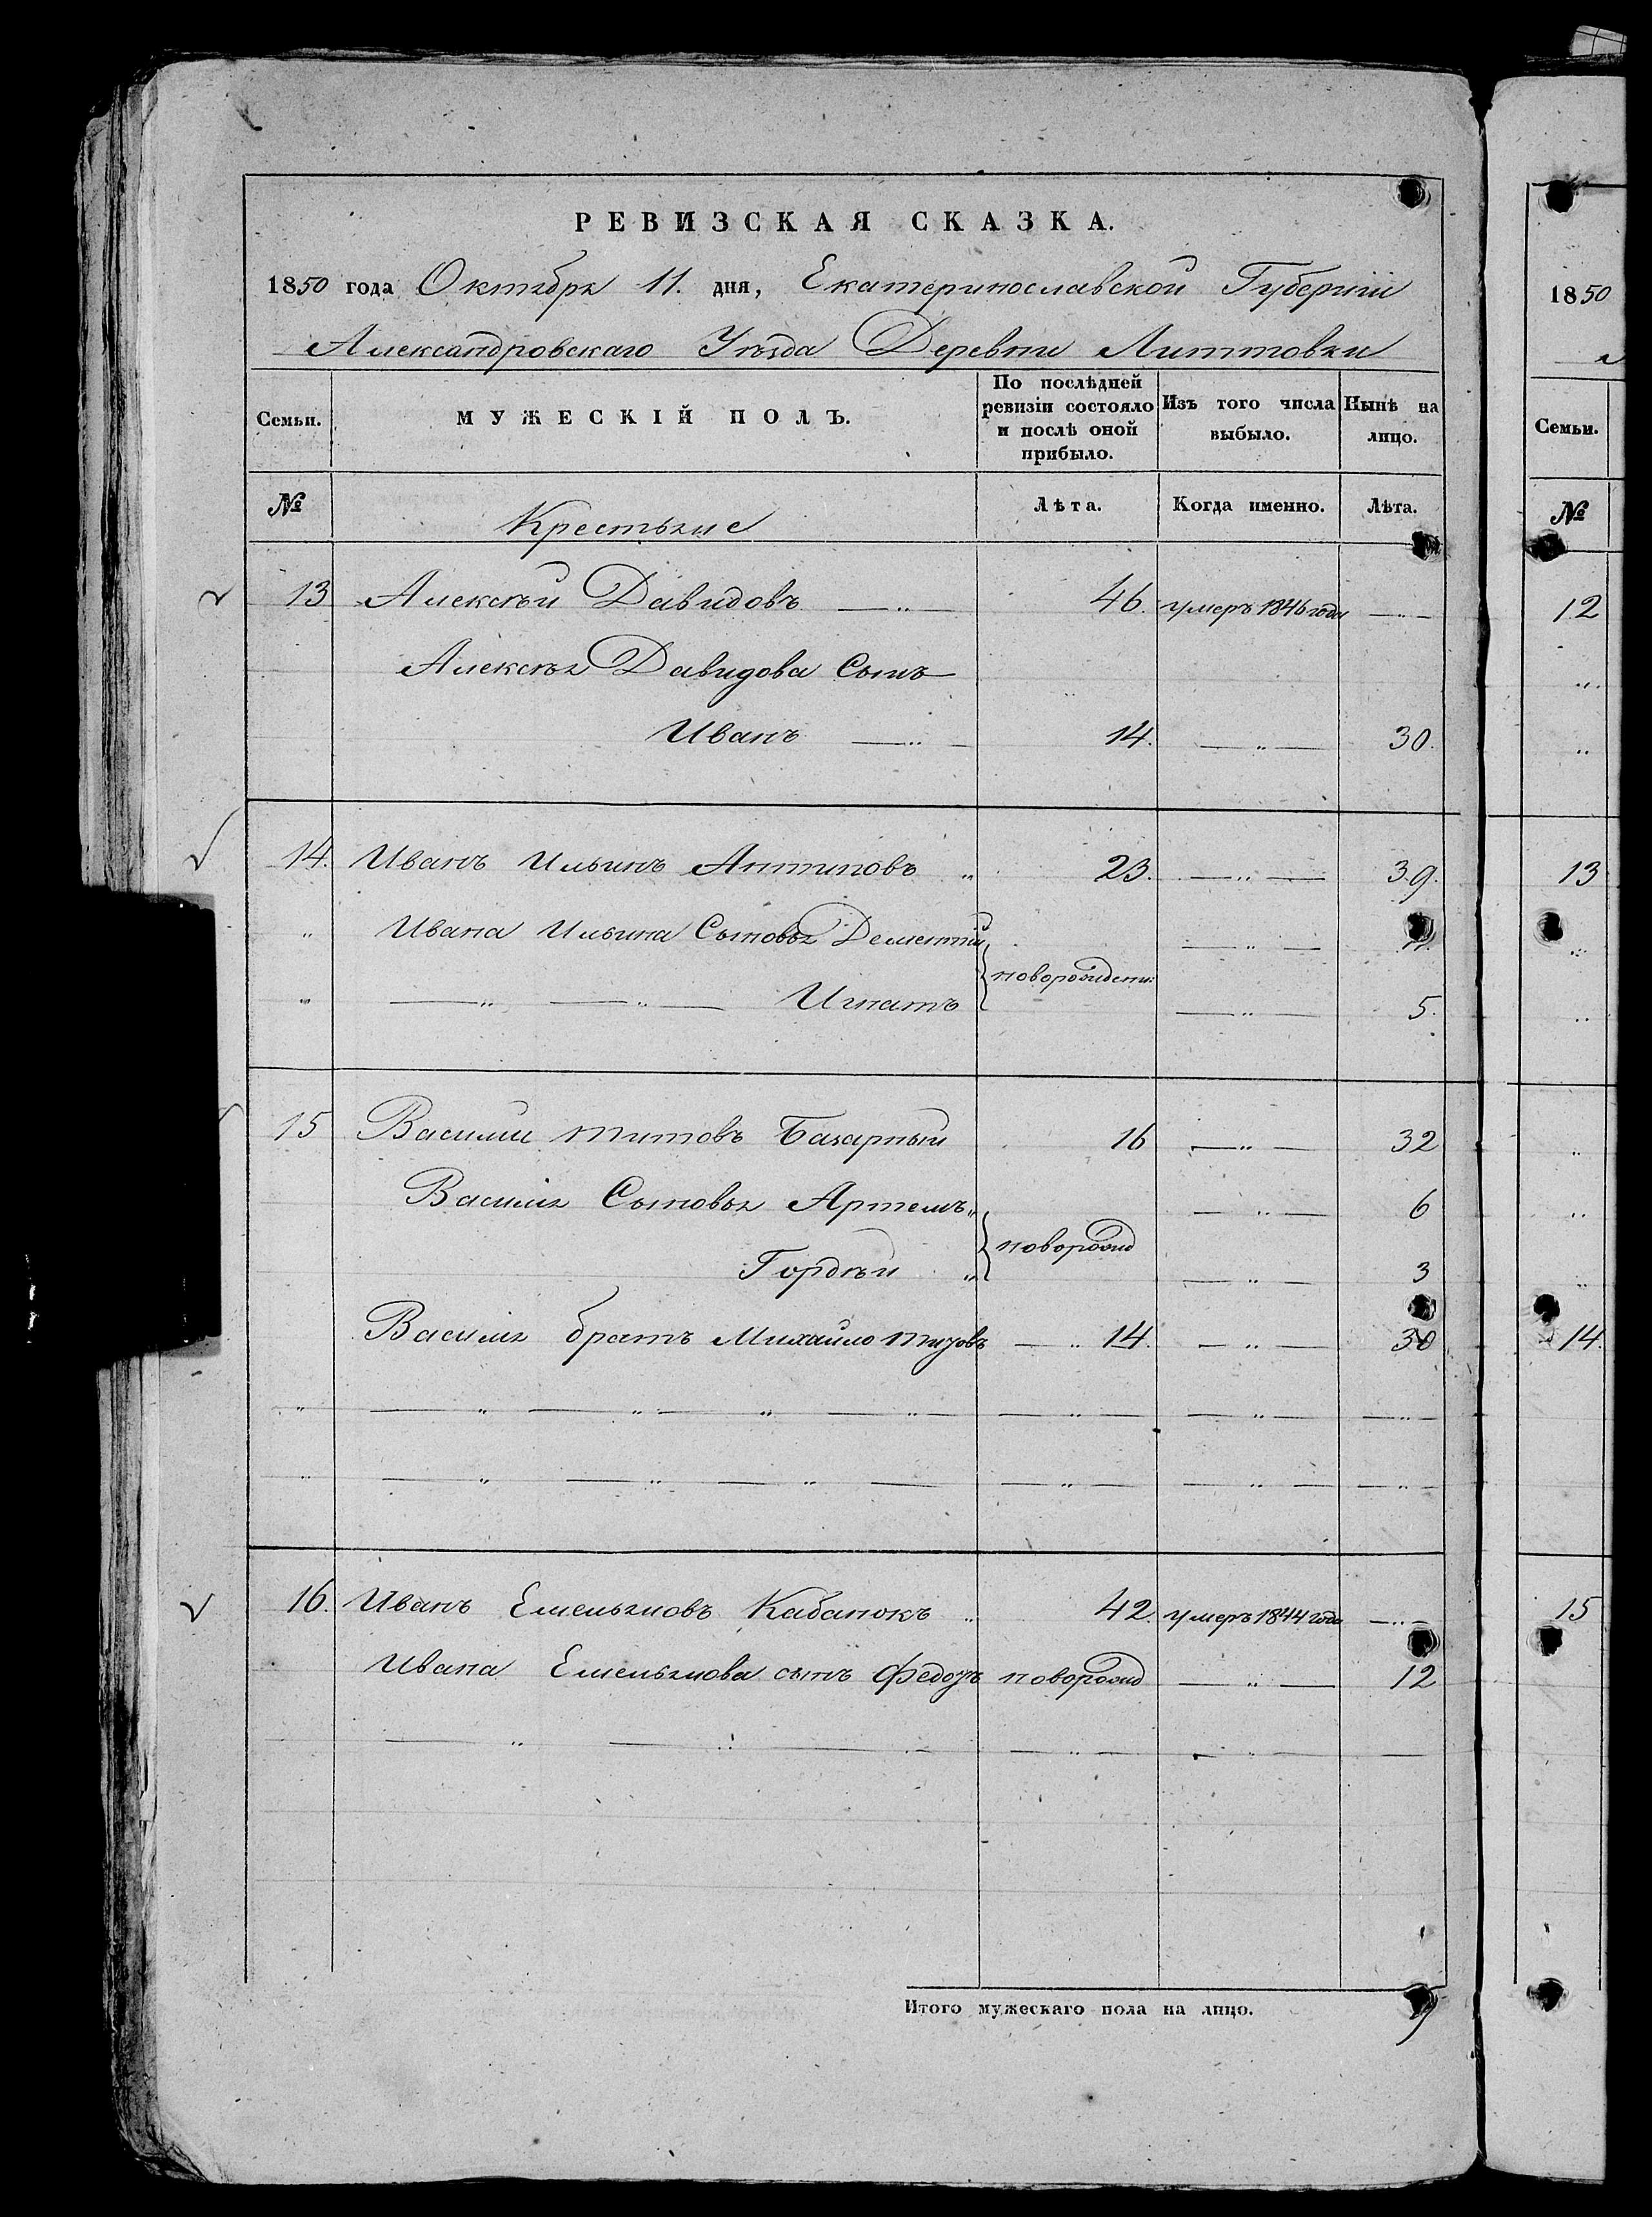 РЕВИЗСКАЯ СКАЗКА.
1850 года Октября 11. дня, Екатеринославской Губерніи
Александровскаго Уѣзда Деревни Литтовки
Семьи. МУЖЕСКІЙ ПОЛЪ. По послѣдней ревизіи состояло и послѣ оной прибыло. Изъ того числа выбыло. Нынѣ на лицо.
№ Крестьяне Лѣта. Когда именно. Лѣта.
13 Алексѣй Давидовъ 46. умеръ 1846 года
Алексѣя Давидова Сынъ
Иванъ 14. 30.
14. Иванъ Ильинъ Антиповъ 23. 39.
Ивана Ильина Сыновья Дементій новорожден:
Игнатъ 5.
15 Василій Титовъ Базарный 16 32
Василія Сыновья Артемъ 6
новорожд
Гордѣй 3
Василія братъ Михайло Титовъ 14. 30
16. Иванъ Емельяновъ Кабанюкъ 42. умеръ 1844 года
Ивана Емельянова сынъ Федоръ новорожд 12
Итого мужескаго пола на лицо. 9
1850
Семьи.
№
12
13
14.
15